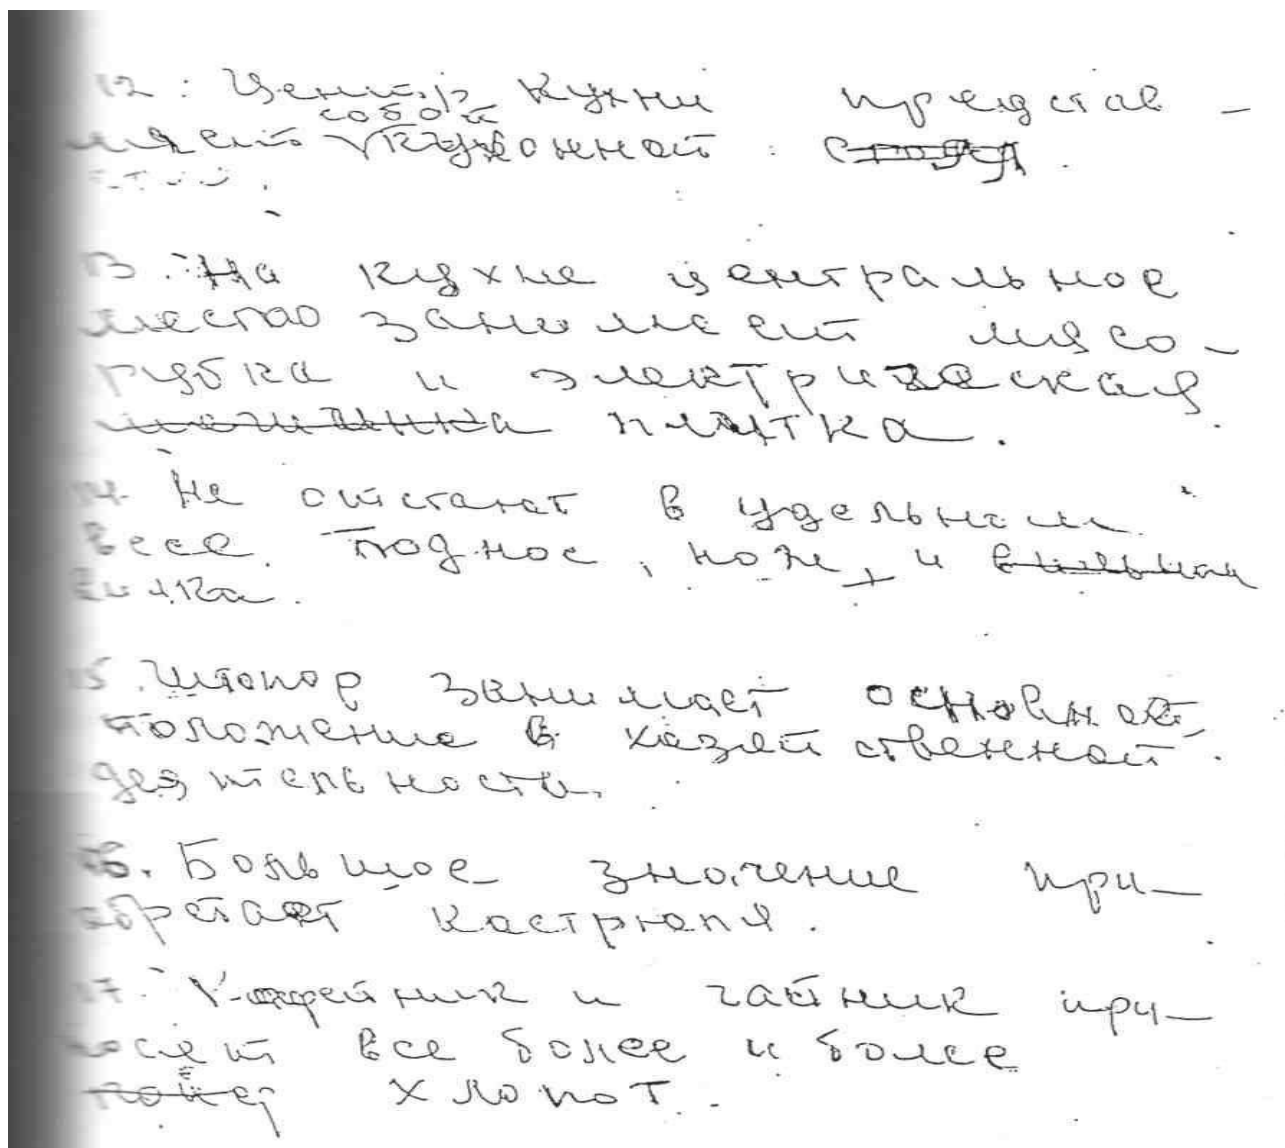 12. Центр кухни представ-
ляет собой кухонной
стол.
13. На кухне центральное
место занимает мясо-
рубка и электрическая
плитка.
14. Не отстают в удельном
весе поднос, нож, и
вилка.
15. Штопор занимает основное
положение в хозяйственной
деятельности.
16. Большое значение при-
обретает кастрюля.
17. Кофейник и чайник при-
носят все более и более
хлопот.